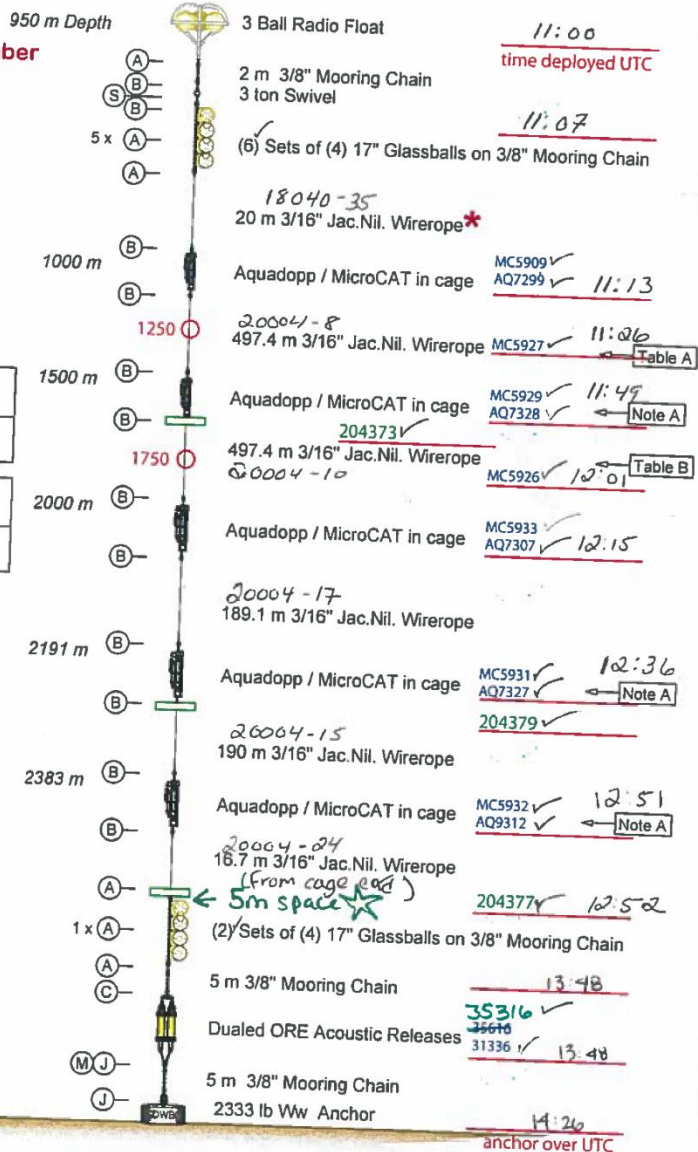 950 m Depth
3 Ball Radio Float
11:00
ber
time deployed UTC
A
B
2 m 3/8" Mooring Chain
S
3 ton Swivel
B
11:07
5 x A
(6)✓ Sets of (4) 17" Glassballs on 3/8" Mooring Chain
A
18040-35
20 m 3/16" Jac.Nil. Wirerope*
B
MC5909 ✓
1000 m
Aquadopp / MicroCAT in cage
AQ7299 ✓ 11:13
B
20004-8
1250
497.4 m 3/16" Jac.Nil. Wirerope
MC5927 ✓ 11:26
Table A
B
1500 m
Aquadopp / MicroCAT in cage
MC5929 ✓ 11:49
AQ7328 ✓
Note A
B
204373 ✓
497.4 m 3/16" Jac.Nil. Wirerope
1750
20004-10
MC5926 ✓ 12:01
Table B
B
2000 m
Aquadopp / MicroCAT in cage
MC5933 ✓
AQ7307 ✓ 12:15
B
20004-17
189.1 m 3/16" Jac.Nil. Wirerope
B
2191 m
Aquadopp / MicroCAT in cage
MC5931 ✓ 12:36
AQ7327 ✓
Note A
B
204379 ✓
20004-15
190 m 3/16" Jac.Nil. Wirerope
B
2383 m
Aquadopp / MicroCAT in cage
MC5932 ✓ 12:51
AQ9312 ✓
Note A
B
20004-24
16.7 m 3/16" Jac.Nil. Wirerope
(from cage )
A
← 5m space ☆
204377 ✓ 12:52
1 x A
(2)✓ Sets of (4) 17" Glassballs on 3/8" Mooring Chain
A
5 m 3/8" Mooring Chain
13:48
C
35316 ✓
Dualed ORE Acoustic Releases
35616
31336 ✓ 13:48
M J
5 m 3/8" Mooring Chain
J
DWB
2333 lb Ww Anchor
14:26
anchor over UTC